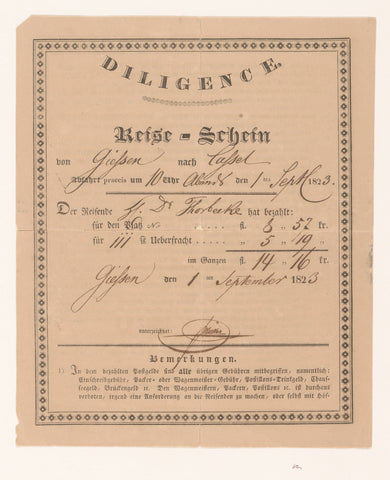 DILIGENCE.
Reise-Schein
von Giessen nach Cassel
Abfahrt praecis um 10 Uhr Abends den 1 Septb 1823.
Der Reisende H. Dr Thorbecke hat bezahlt:
für den Platz No fl. 8 „ 57 kr.
für lll ℔ Ueberfracht . . . . . . „ 5 „ 19 „
im Ganzen fl. 14 „ 16 kr.
Giessen den 1 ten September 1823
unterzeichnet:
Bemerkungen.
1) In dem bezahlten Postgelde sind alle übrigen Gebühren mitbegriffen, namentlich:
Einschreibgebühr, Packer- oder Wagenmeister-Gebühr, Postillons-Trinkgeld, Chaus-
seegeld, Brückengeld ꝛc. Den Wagenmeistern, Packern, Postillons ꝛc. ist durchaus
verboten, irgend eine Anforderung an die Reisenden zu machen, oder selbst mit Höf-